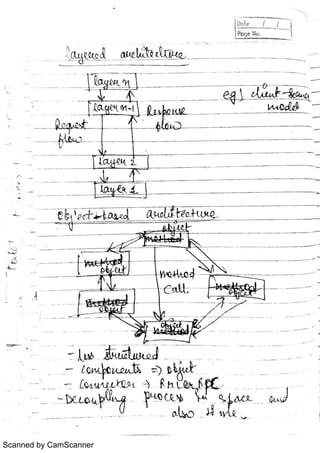 Date / /
Page No.
layered architecture
layer n
layer n-1
Response flow
eg) client-server model
Request flow
layer 2
layer 1
Object-based architecture
object
method
method
object
method call
method
object
method
object
object
method
- less structured
- components => object
- connector -> RMI or RPC
- Decoupling process in space and
also time
Scanned by CamScanner